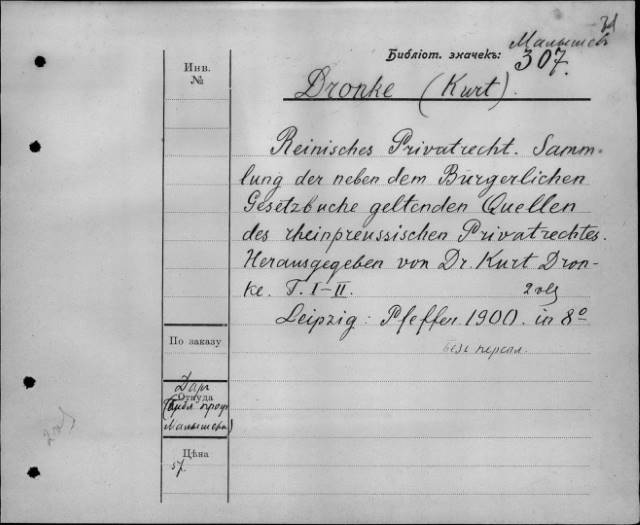 31
Малышев
Библіот. значекъ: 307.
Инв.
№
Dronke (Kurt).
Reinisches Privatrecht. Samm-
lung der neben dem Bürgerlichen
Gesetzbuche geltenden Quellen
des rheinpreussischen Privatrechtes.
Herausgegeben von Dr. Kurt Dron-
ke. T. I-II.
Leipzig: Pfeffer. 1900. in 8°
По заказу
Дар
Откуда
Малышева)
Цѣна